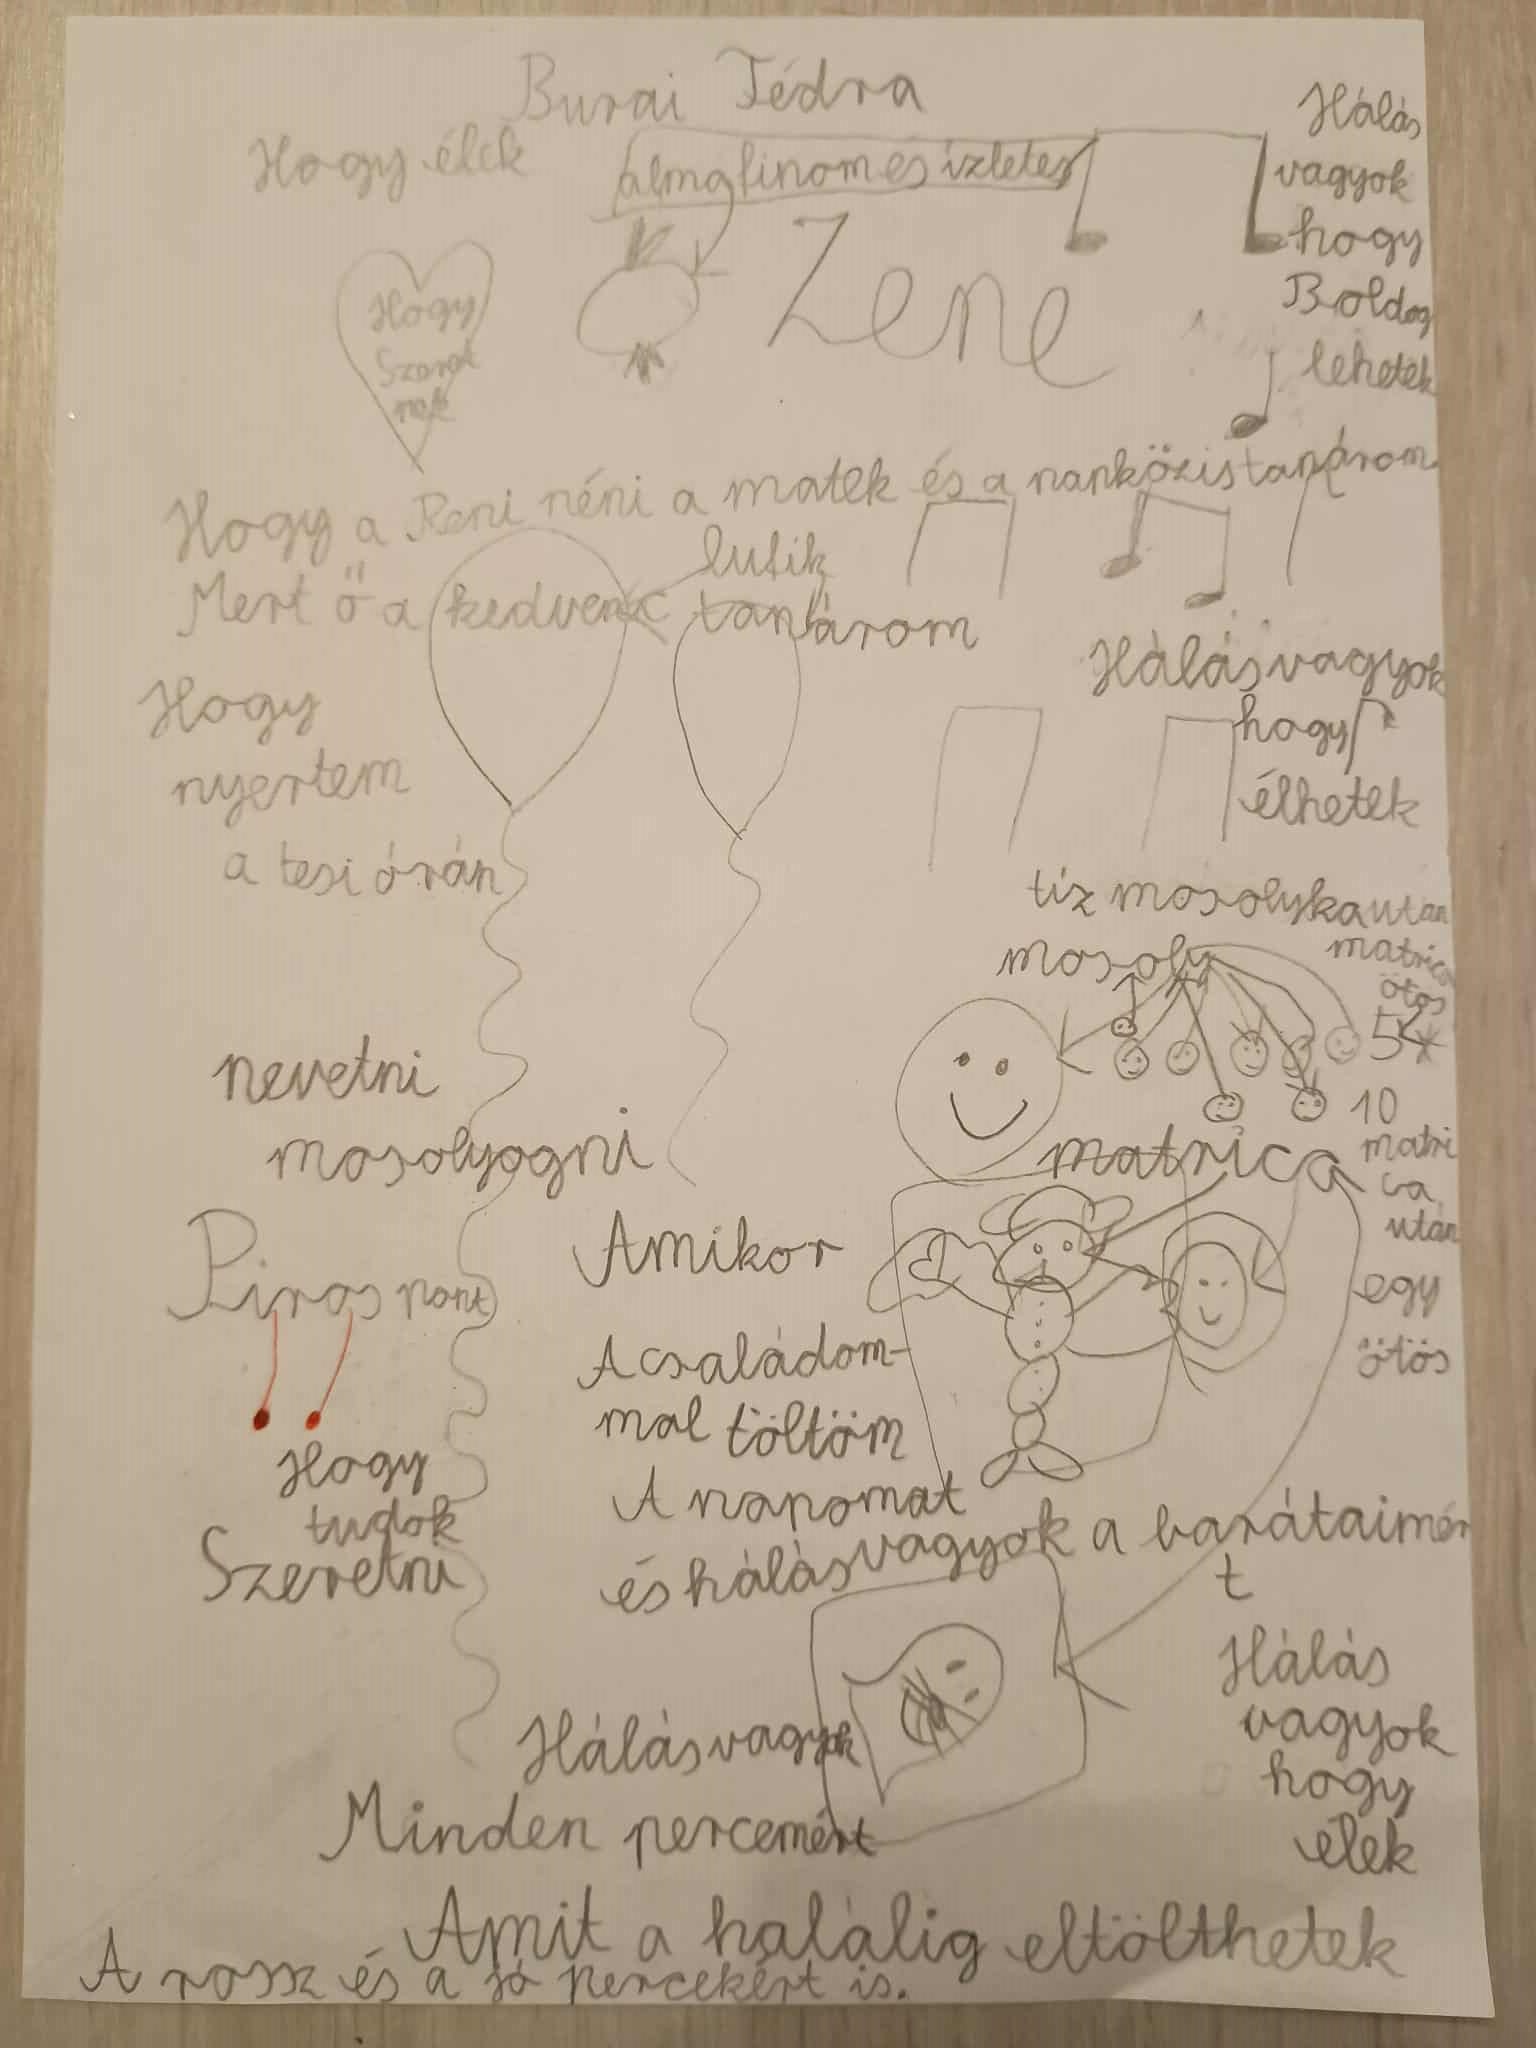 Burai Tédra
Hogy élek
alma finom és izletes
Hálás
vagyok
hogy
Boldog
lehetek
Hogy
Szeret
nek
Zene
Hogy a Reni néni a matek és a napközis tanárom
Mert ő a kedvenc tanárom
lufik
Hogy
nyertem
a tesi órán
Hálás vagyok
hogy
élhetek
tíz mosolyka után
matrica
ötös
5
mosoly
nevetni
mosolyogni
10
matri
ca
után
egy
ötös
matrica
Piros pont
Hogy
tudok
Szeretni
Amikor
A családom-
mal töltöm
A napomat
és hálás vagyok a barátaimér
t
Hálás vagyok
Minden percemért
Hálás
vagyok
hogy
élek
Amit a halálig eltölthetek
A rossz és a jó percekért is.